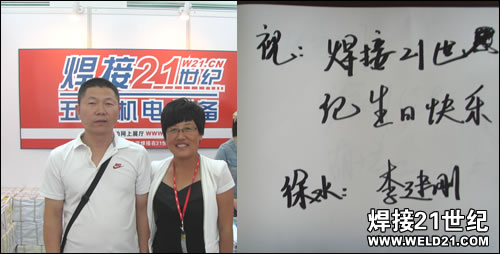 W21.CN
焊接21世纪
五 机电 备
网上展厅 WWW
祝：焊接21世
纪生日快乐
徐水：李建刚
焊接21世纪
WWW.WELD21.COM